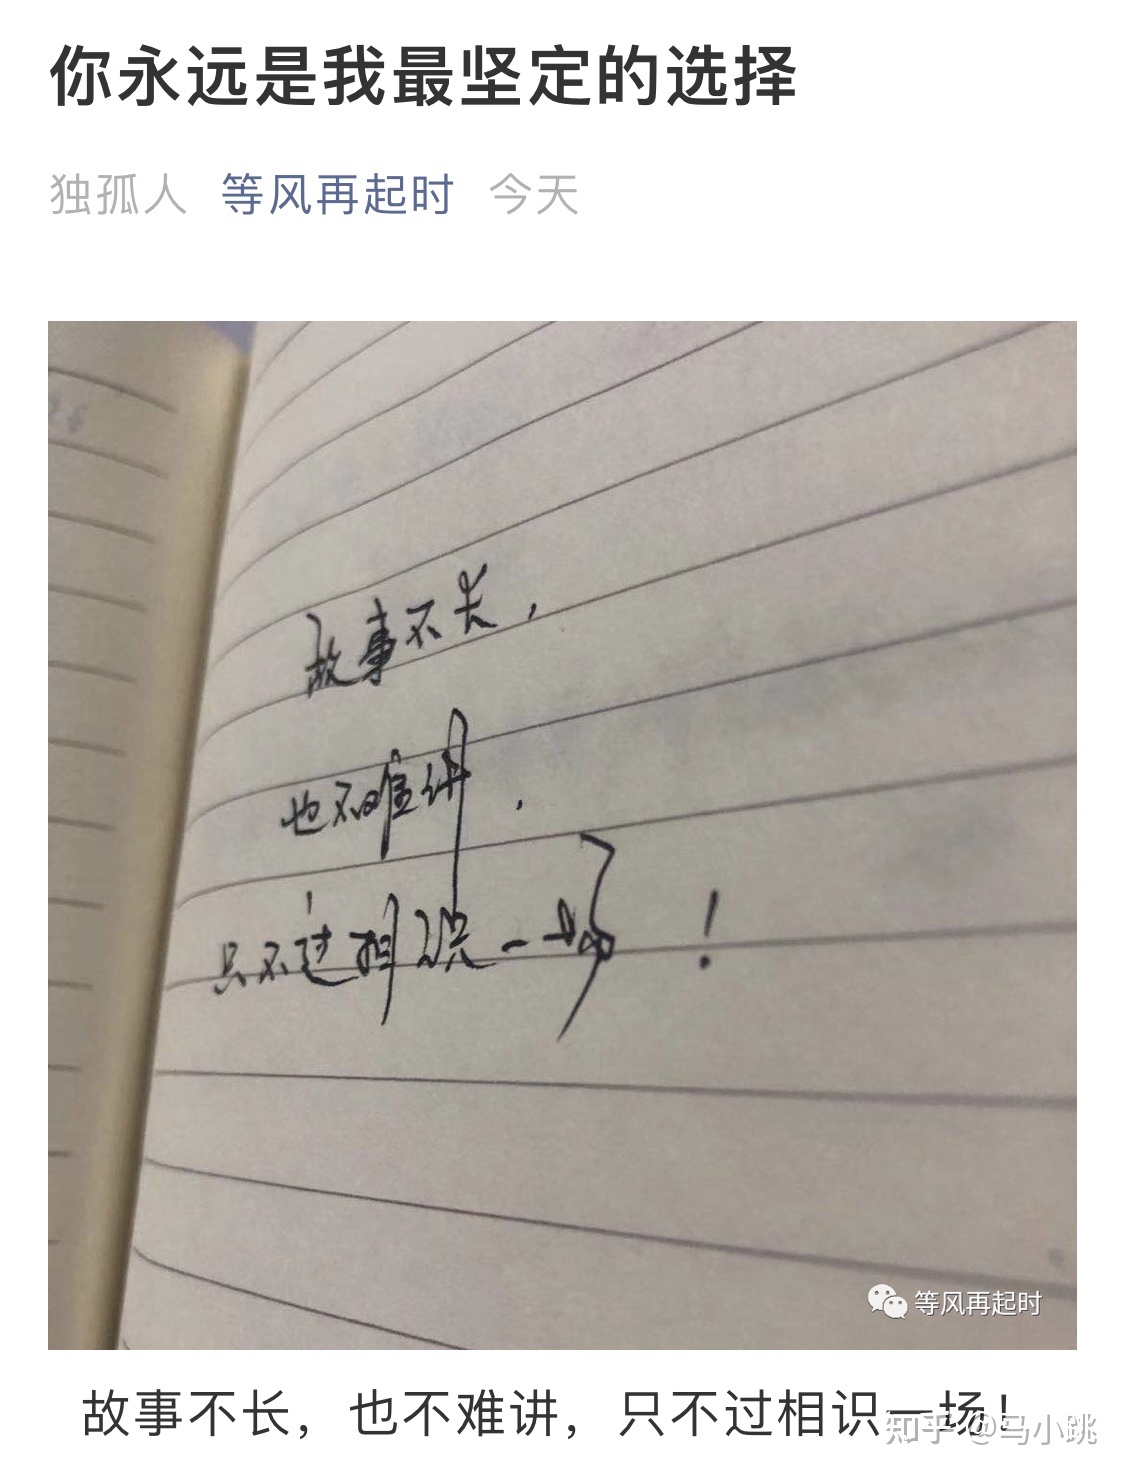 你永远是我最坚定的选择
独孤人 等风再起时 今天
故事不长，
也不难讲，
只不过相识一场！
等风再起时
故事不长，也不难讲，只不过相识一场！
知乎 @马小跳